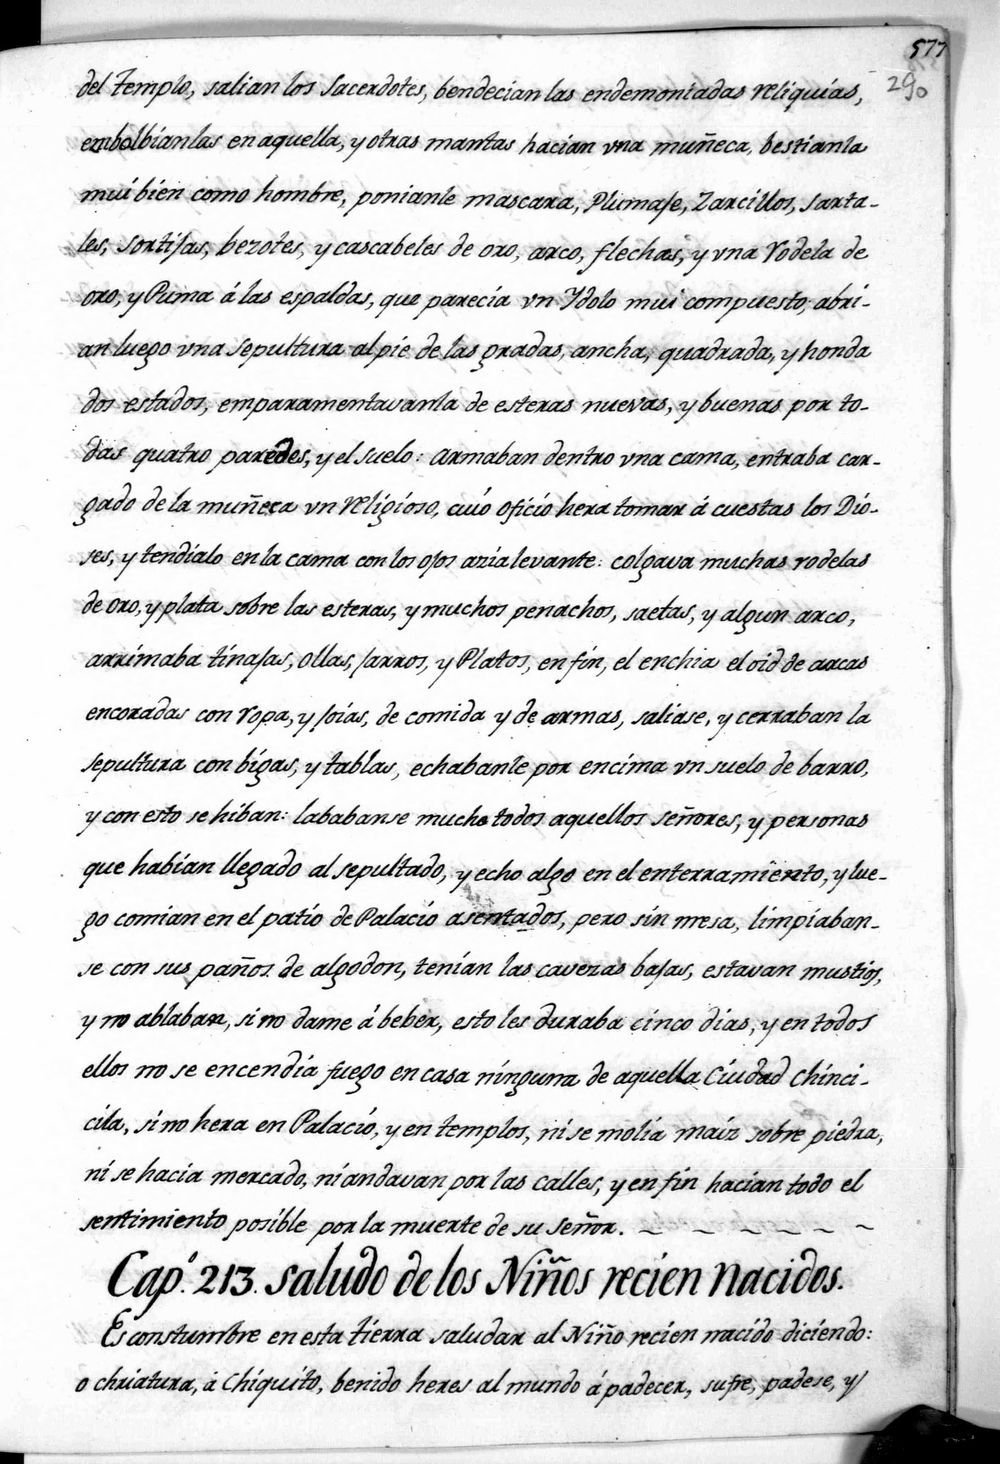 577
290
del Templo, salian los Sacerdotes, bendecian las endemoniadas reliquias,
embolbianlas en aquella, y otras mantas hacian vna muñeca, bestianla
mui bien como hombre, ponianle mascara, Plumaje, Zarcillos, sarta-
les, sortijas, bezotes, y cascabeles de oro, arco, flechas, y vna rodela de
oro, y Puma á las espaldas, que parecia vn Ydolo mui compuesto, abri-
an luego vna sepultura al pie de las gradas, ancha, quadrada, y honda
dos estados, emparamentavanla de esteras nuevas, y buenas por to-
das quatro paredes, y el suelo: armaban dentro vna cama, entraba car-
gado de la muñeca vn religioso, cuio oficio hera tomar á cuestas los Dio-
ses, y tendialo en la cama con los ojos azia levante: colgava muchas rodelas
de oro, y plata sobre las esteras, y muchos penachos, saetas, y algun arco,
arrimaba tinajas, ollas, jarros, y Platos, en fin, el enchia el oid de arcas
encoradas con ropa, y joias, de comida y de armas, saliase, y cerraban la
sepultura con bigas, y tablas, echabanle por encima vn suelo de barro,
y con esto se hiban: lababanse mucho todos aquellos señores, y personas
que habian llegado al sepultado, y echo algo en el enterramiento, y lue-
go comian en el patio de Palacio asentados, pero sin mesa, limpiaban-
se con sus paños de algodon, tenian las cavezas bajas, estavan mustios,
y no ablaban, si no dame á beber, esto les duraba cinco dias, y en todos
ellos no se encendia fuego en casa ninguna de aquella Ciudad Chinci-
cila, si no hera en Palacio, y en templos, ni se molia maiz sobre piedra,
ni se hacia mercado, ni andavan por las calles, y en fin hacian todo el
sentimiento posible por la muerte de su señor. ~ ~ ~ ~ ~ ~
Cap.º 213. saludo de los Niños recien nacidos.
Es constumbre en esta tierra saludar al Niño recien nacido diciendo:
o chriatura, á Chiquito, benido heres al mundo á padecer, sufre, padese, y